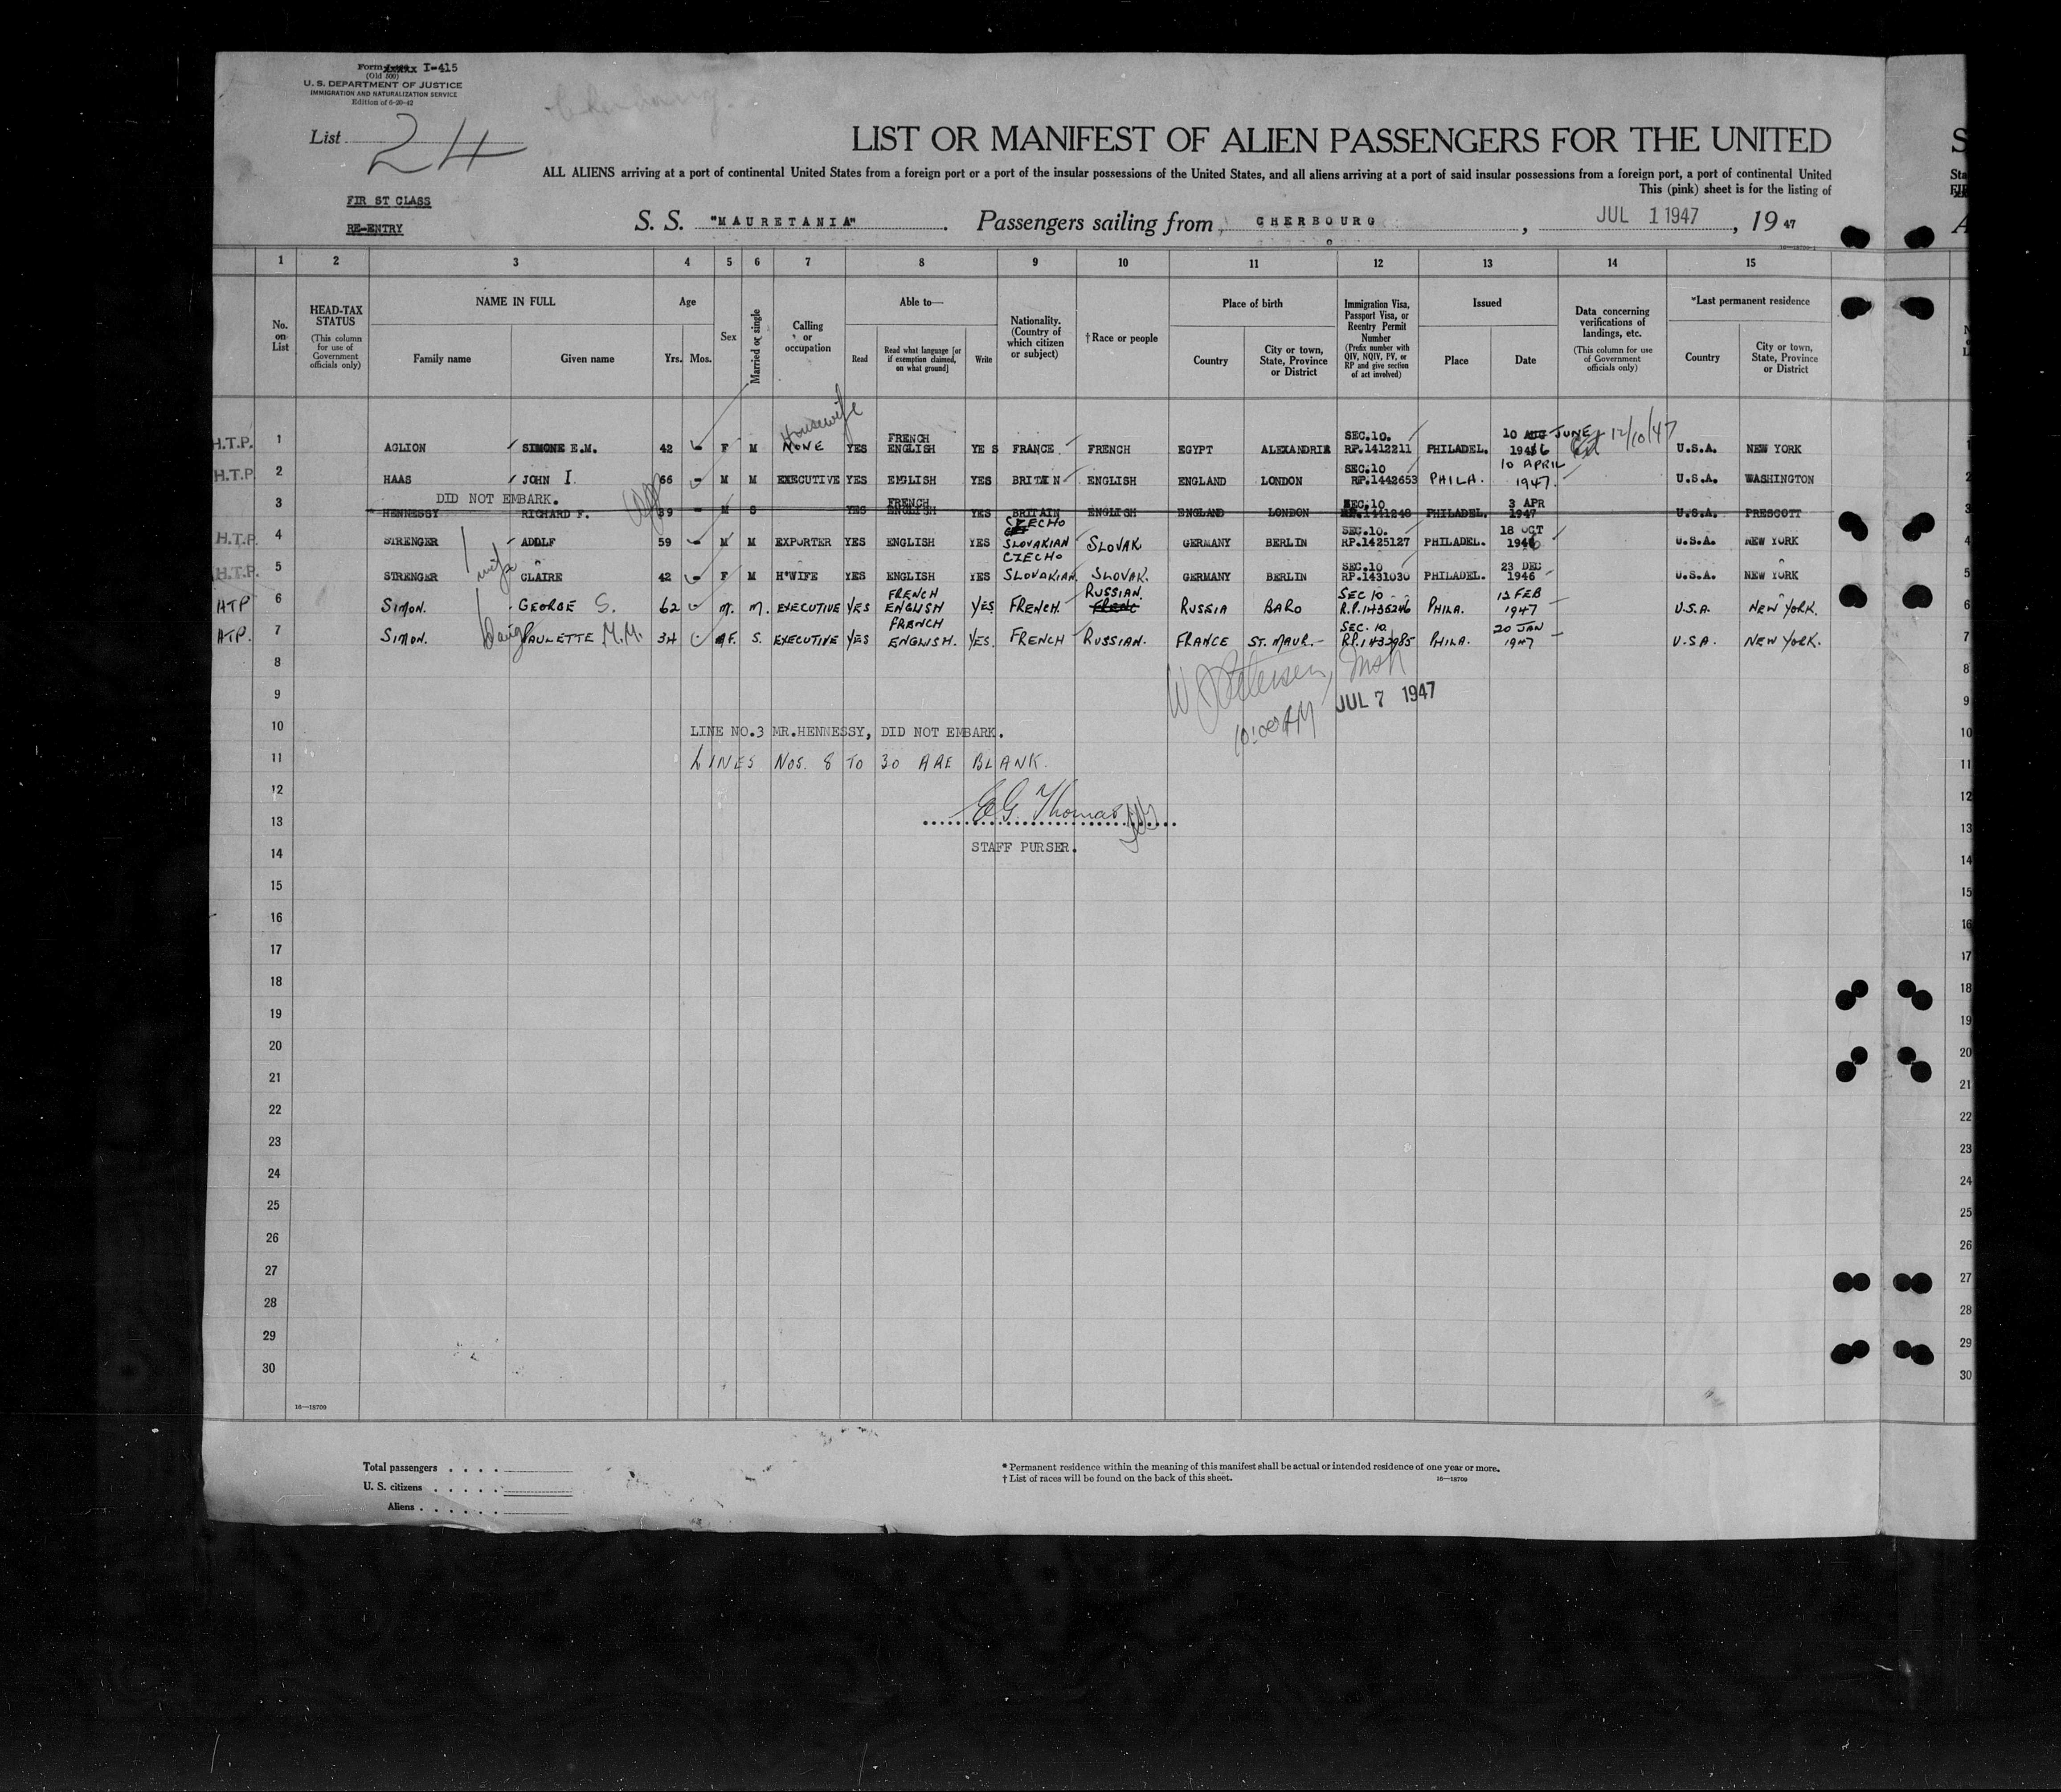 Form I-415
(Old 500)
U. S. DEPARTMENT OF JUSTICE
IMMIGRATION AND NATURALIZATION SERVICE
Edition of 6-20-42
List 24
LIST OR MANIFEST OF ALIEN PASSENGERS FOR THE UNITED
ALL ALIENS arriving at a port of continental United States from a foreign port or a port of the insular possessions of the United States, and all aliens arriving at a port of said insular possessions from a foreign port, a port of continental United
This (pink) sheet is for the listing of
FIRST CLASS
RE-ENTRY
S. S. "MAURETANIA". Passengers sailing from CHERBOURG, JUL 1 1947, 19 47
16—18709-1
1 2 3 4 5 6 7 8 9 10 11 12 13 14 15
No. on List
HEAD-TAX STATUS (This column for use of Government officials only)
NAME IN FULL Family name Given name
Age Yrs. Mos.
Sex
Married or single
Calling or occupation
Able to— Read Read what language [or if exemption claimed, on what ground] Write
Nationality. (Country of which citizen or subject)
†Race or people
Place of birth Country City or town, State, Province or District
Immigration Visa, Passport Visa, or Reentry Permit Number (Prefix number with QIV, NQIV, PV, or RP and give section of act involved)
Issued Place Date
Data concerning verifications of landings, etc. (This column for use of Government officials only)
*Last permanent residence Country City or town, State, Province or District
H.T.P. 1 AGLION SIMONE E.M. 42 F M Housewife NONE YES FRENCH ENGLISH YES FRANCE FRENCH EGYPT ALEXANDRIA SEC.10. RP.1412211 PHILADEL. 10 JUNE 1946 12/10/47 U.S.A. NEW YORK 1
H.T.P. 2 HAAS JOHN I. 66 M M EXECUTIVE YES ENGLISH YES BRITAIN ENGLISH ENGLAND LONDON SEC.10 RP.1442653 PHILA. 10 APRIL 1947. U.S.A. WASHINGTON 2
DID NOT EMBARK.
3 HENNESSY RICHARD F. 39 M S YES FRENCH ENGLISH YES BRITAIN ENGLISH ENGLAND LONDON SEC.10 RP.1441248 PHILADEL. 3 APR 1947 U.S.A. PRESCOTT 3
H.T.P. 4 STRENGER ADOLF 59 M M EXPORTER YES ENGLISH YES CZECHO SLOVAKIAN SLOVAK GERMANY BERLIN SEC.10. RP.1425127 PHILADEL. 18 OCT 1946 U.S.A. NEW YORK 4
H.T.P. 5 STRENGER wife CLAIRE 42 F M H'WIFE YES ENGLISH YES CZECHO SLOVAKIAN SLOVAK. GERMANY BERLIN SEC.10 RP.1431030 PHILADEL. 23 DEC 1946 U.S.A. NEW YORK 5
HTP 6 SIMON. GEORGE S. 62 M. M. EXECUTIVE YES FRENCH ENGLISH YES FRENCH. RUSSIAN. RUSSIA BARO SEC 10 R.P.1436246 PHILA. 12 FEB 1947 U.S.A. NEW YORK. 6
HTP. 7 SIMON. Daug PAULETTE M.M. 34 F. S. EXECUTIVE YES FRENCH ENGLISH. YES. FRENCH RUSSIAN. FRANCE ST. MAUR. SEC. 10 RP.1433985 PHILA. 20 JAN 1947 U.S.A. NEW YORK. 7
8 8
9 JUL 7 1947 9
10:00 AM
10 LINE NO.3 MR.HENNESSY, DID NOT EMBARK. 10
11 LINES NOS. 8 TO 30 ARE BLANK. 11
12 12
13 E.G. Thomas 13
14 STAFF PURSER. 14
15 15
16 16
17 17
18 18
19 19
20 20
21 21
22 22
23 23
24 24
25 25
26 26
27 27
28 28
29 29
30 30
16—18709
Total passengers
U. S. citizens
Aliens
* Permanent residence within the meaning of this manifest shall be actual or intended residence of one year or more.
† List of races will be found on the back of this sheet.
16—18709